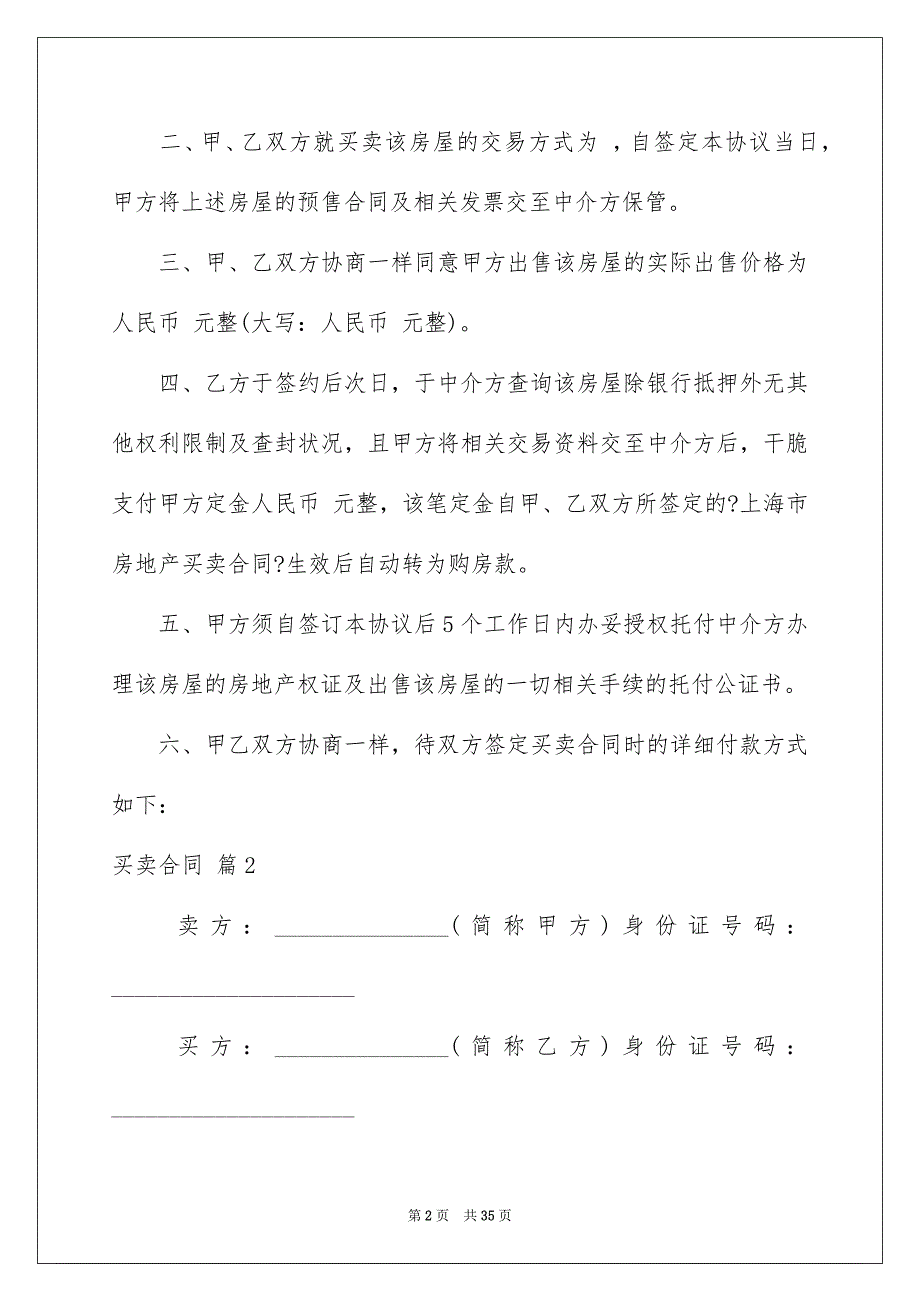 二、甲、乙双方就买卖该房屋的交易方式为 ，自签定本协议当日，
甲方将上述房屋的预售合同及相关发票交至中介方保管。
三、甲、乙双方协商一样同意甲方出售该房屋的实际出售价格为
人民币 元整(大写：人民币 元整)。
四、乙方于签约后次日，于中介方查询该房屋除银行抵押外无其
他权利限制及查封状况，且甲方将相关交易资料交至中介方后，干脆
支付甲方定金人民币 元整，该笔定金自甲、乙双方所签定的?上海市
房地产买卖合同?生效后自动转为购房款。
五、甲方须自签订本协议后5个工作日内办妥授权托付中介方办
理该房屋的房地产权证及出售该房屋的一切相关手续的托付公证书。
六、甲乙双方协商一样，待双方签定买卖合同时的详细付款方式
如下：
买卖合同 篇2
卖方：_______________(简称甲方)身份证号码：
_____________________
买方：_______________(简称乙方)身份证号码：
_____________________
第2页 共35页